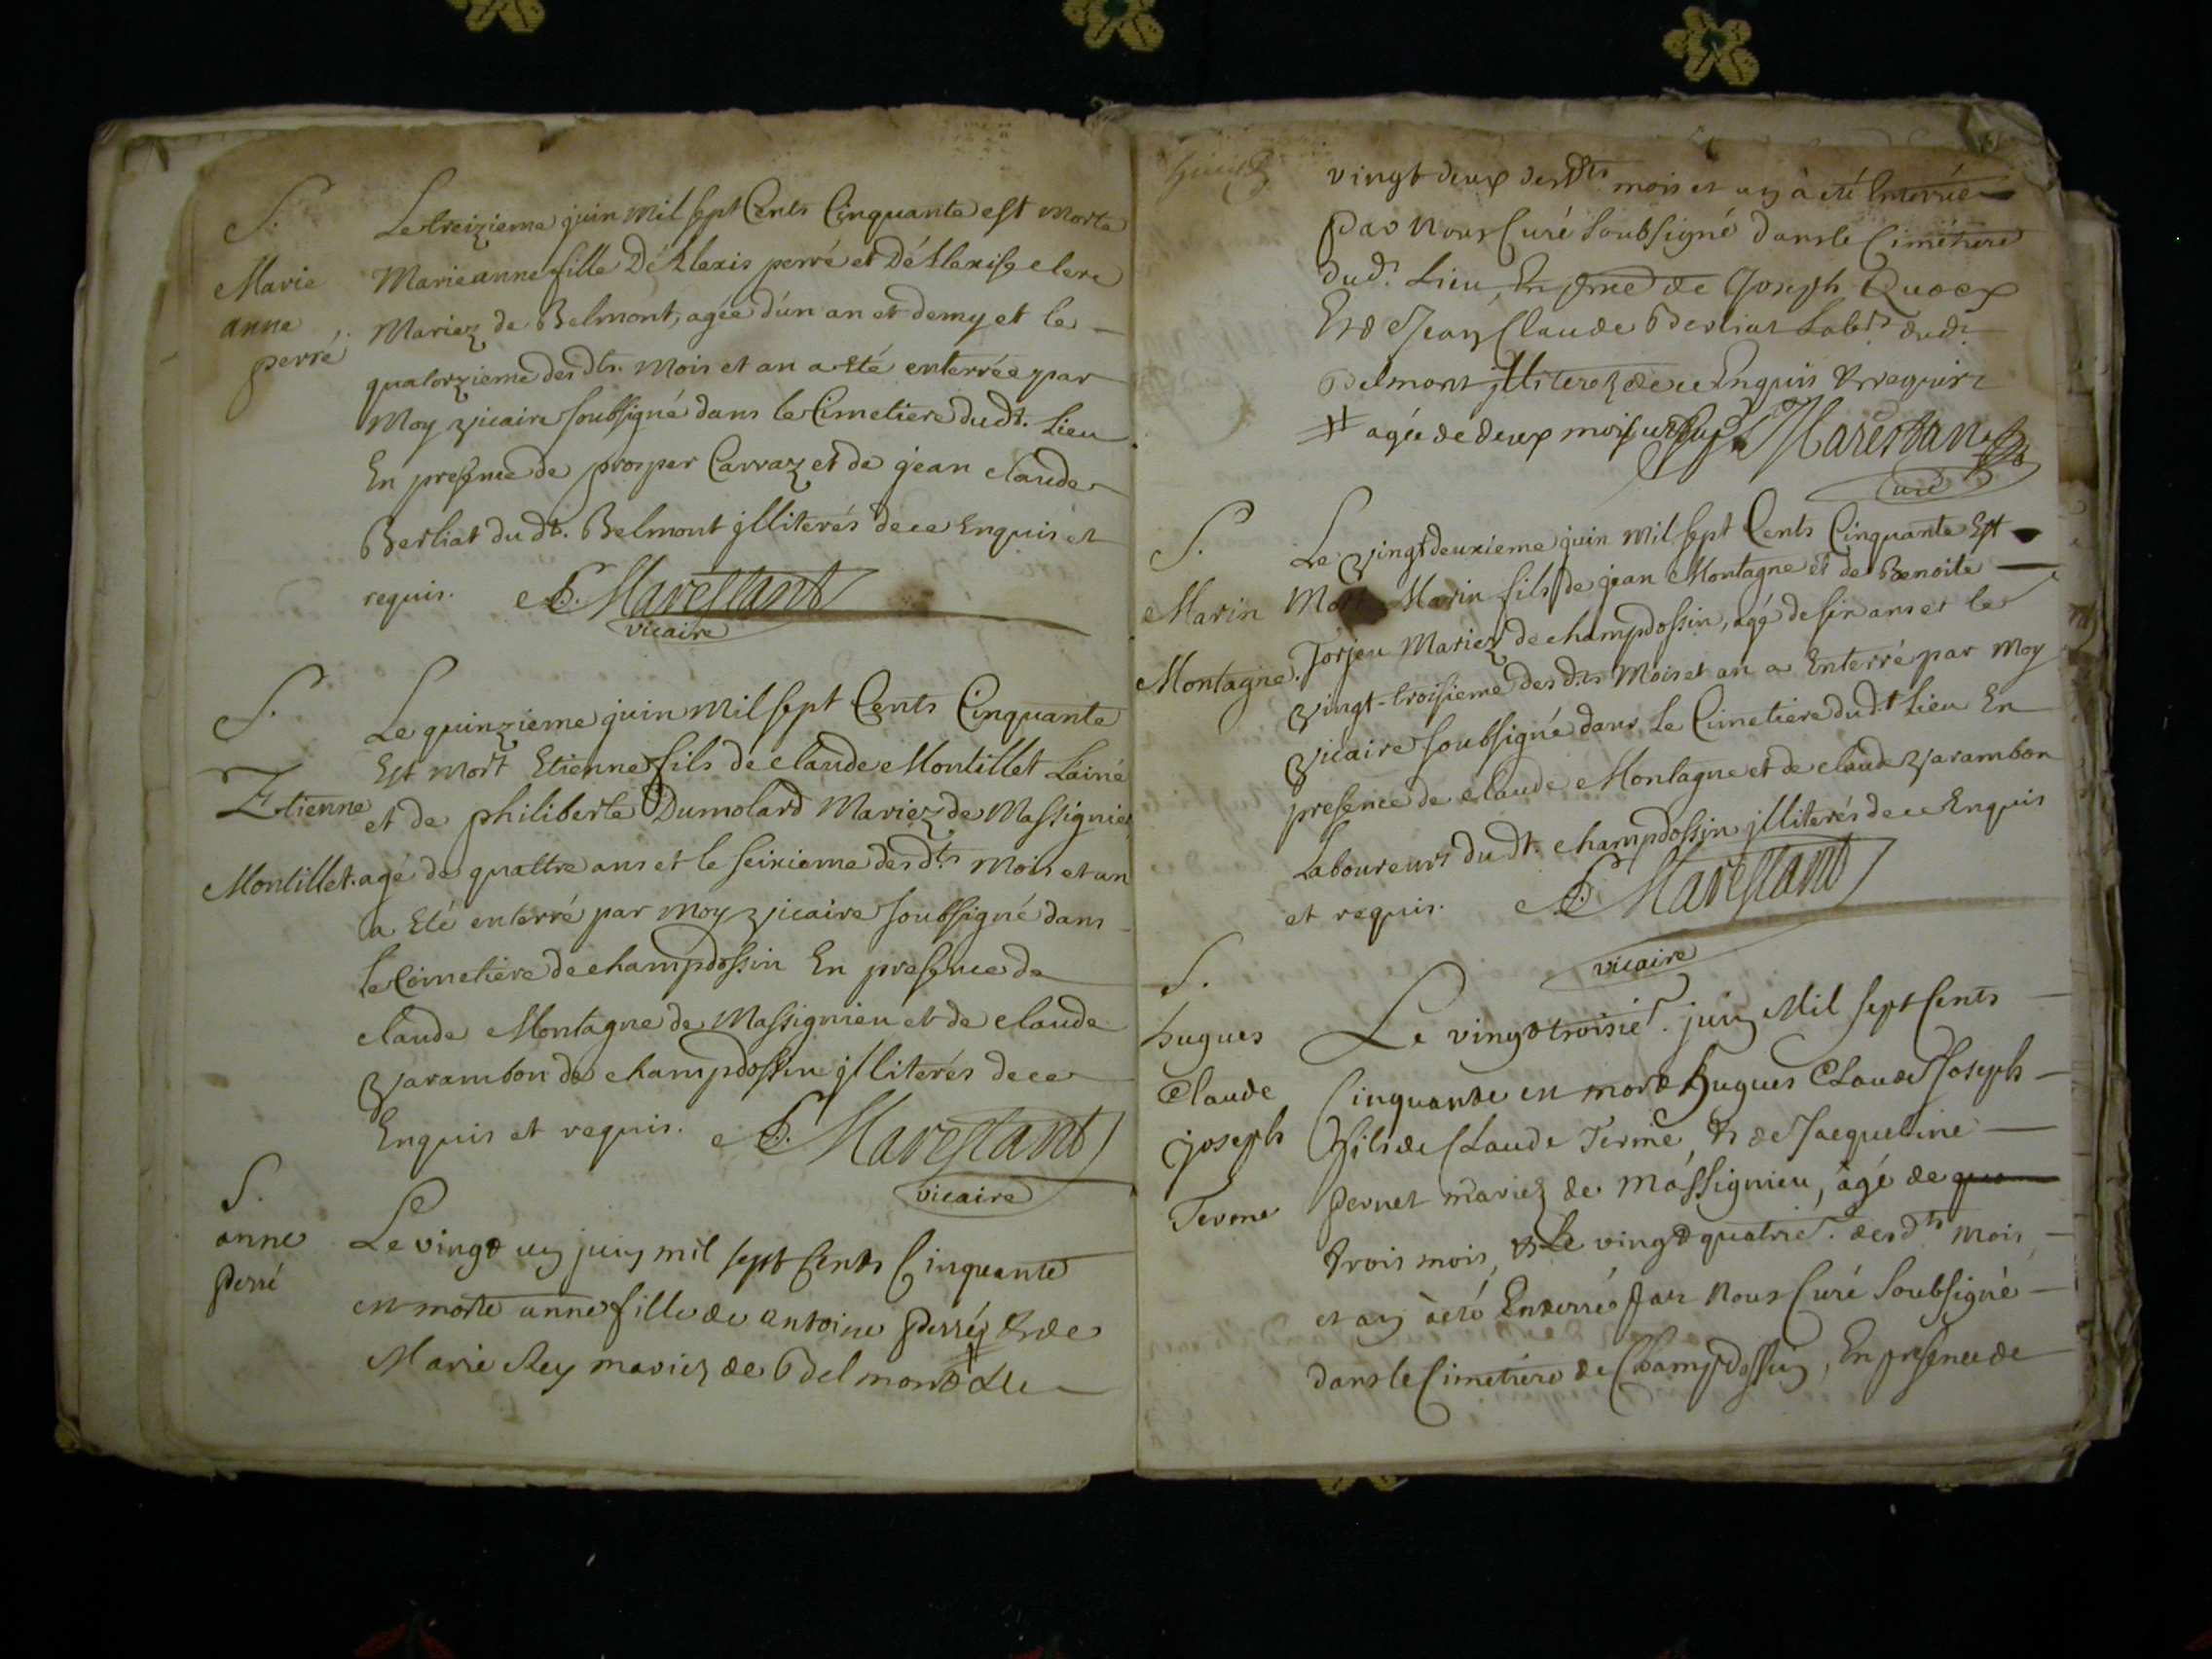 S.
Marie
anne
perré
Le treizieme juin mil sept Cents Cinquante est morte
Marie anne fille D'Alexis perré et D'Alexise clerc
Mariez de Belmont, agée d'un an et demy et le
quatorzieme desdts. Mois et an a Eté enterrée par
Moy vicaire soubsigné dans le Cimetiere dudt. Lieu
En presence de prosper Carraz et de jean claude
Berliat dudt. Belmont jlliterés de ce Enquis et
requis. Marestant
vicaire
S.
Etienne
Montillet.
Le quinzieme juin mil sept Cents Cinquante
Est mort Etienne fils de claude Montillet Lainé
et de philiberte Dumolard Mariez de Massignieu
agé de quattre ans et le seixieme desdts Mois et an
a Eté enterré par moy vicaire soubsigné dans
le Cimetiere de champdossin En presence de
claude Montagne de Massignieu et de claude
varambon de champdossin jlliterés de ce
Enquis et requis. Marestant
vicaire
S.
anne
Perré
Le vingt un juin mil sept Cents Cinquante
est morte anne fille de antoine Perré # Et de
Marie Rey mariez de Belmont & le
vingt deux desdts mois et an à été Enterrée
Par Nous Curé Soubsigné dans le Cimetiere
dud. Lieu, En pnce de Joseph
Et de Jean Claude Berliat Labrs dudt
Belmont jlliterez de ce Enquis & requis
# agée de deux mois Marestan
Curé
S.
Marin
Montagne.
Le vingt deuxieme juin mil sept Cents Cinquante Est
Mort Marin fils de jean Montagne et de Benoite
Torjeu Mariez de champdossin, agé de six ans et le
vingt-troisieme desdts Mois et an a Enterré par Moy
vicaire soubsigné dans Le Cimetiere dudt Lieu En
presence de claude Montagne et de claude varambon
Laboureurs dudt. champdossin jlliterés de ce Enquis
et requis. Marestant
vicaire
S.
hugues
Claude
joseph
Terme
Le vingt troisie. juin Mil Sept Cents
Cinquante est mort hugues Claude Joseph
Fils de Claude Terme, & de Jacqueline
Pernet mariez de Massignieu, âgé de
trois mois, & Le vingt quatrie. desdts mois
et an à eté Enterré Par Nous Curé Soubsigné
dans le Cimetiere de Champdossin, En presence de